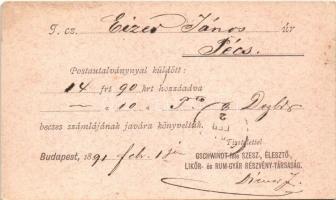 T. cz. Eizer János úr
Pécs.
Postautalványnyal küldött:
14 frt 90 krt hozzáadva
— „ 10 „
becses számlájának javára könyveltük.
Tisztelettel
Budapest, 1891 febr. 1
GSCHWINDT-féle SZESZ-, ÉLESZTŐ-,
LIKŐR- és RUM-GYÁR RÉSZVÉNY-TÁRSASÁG.